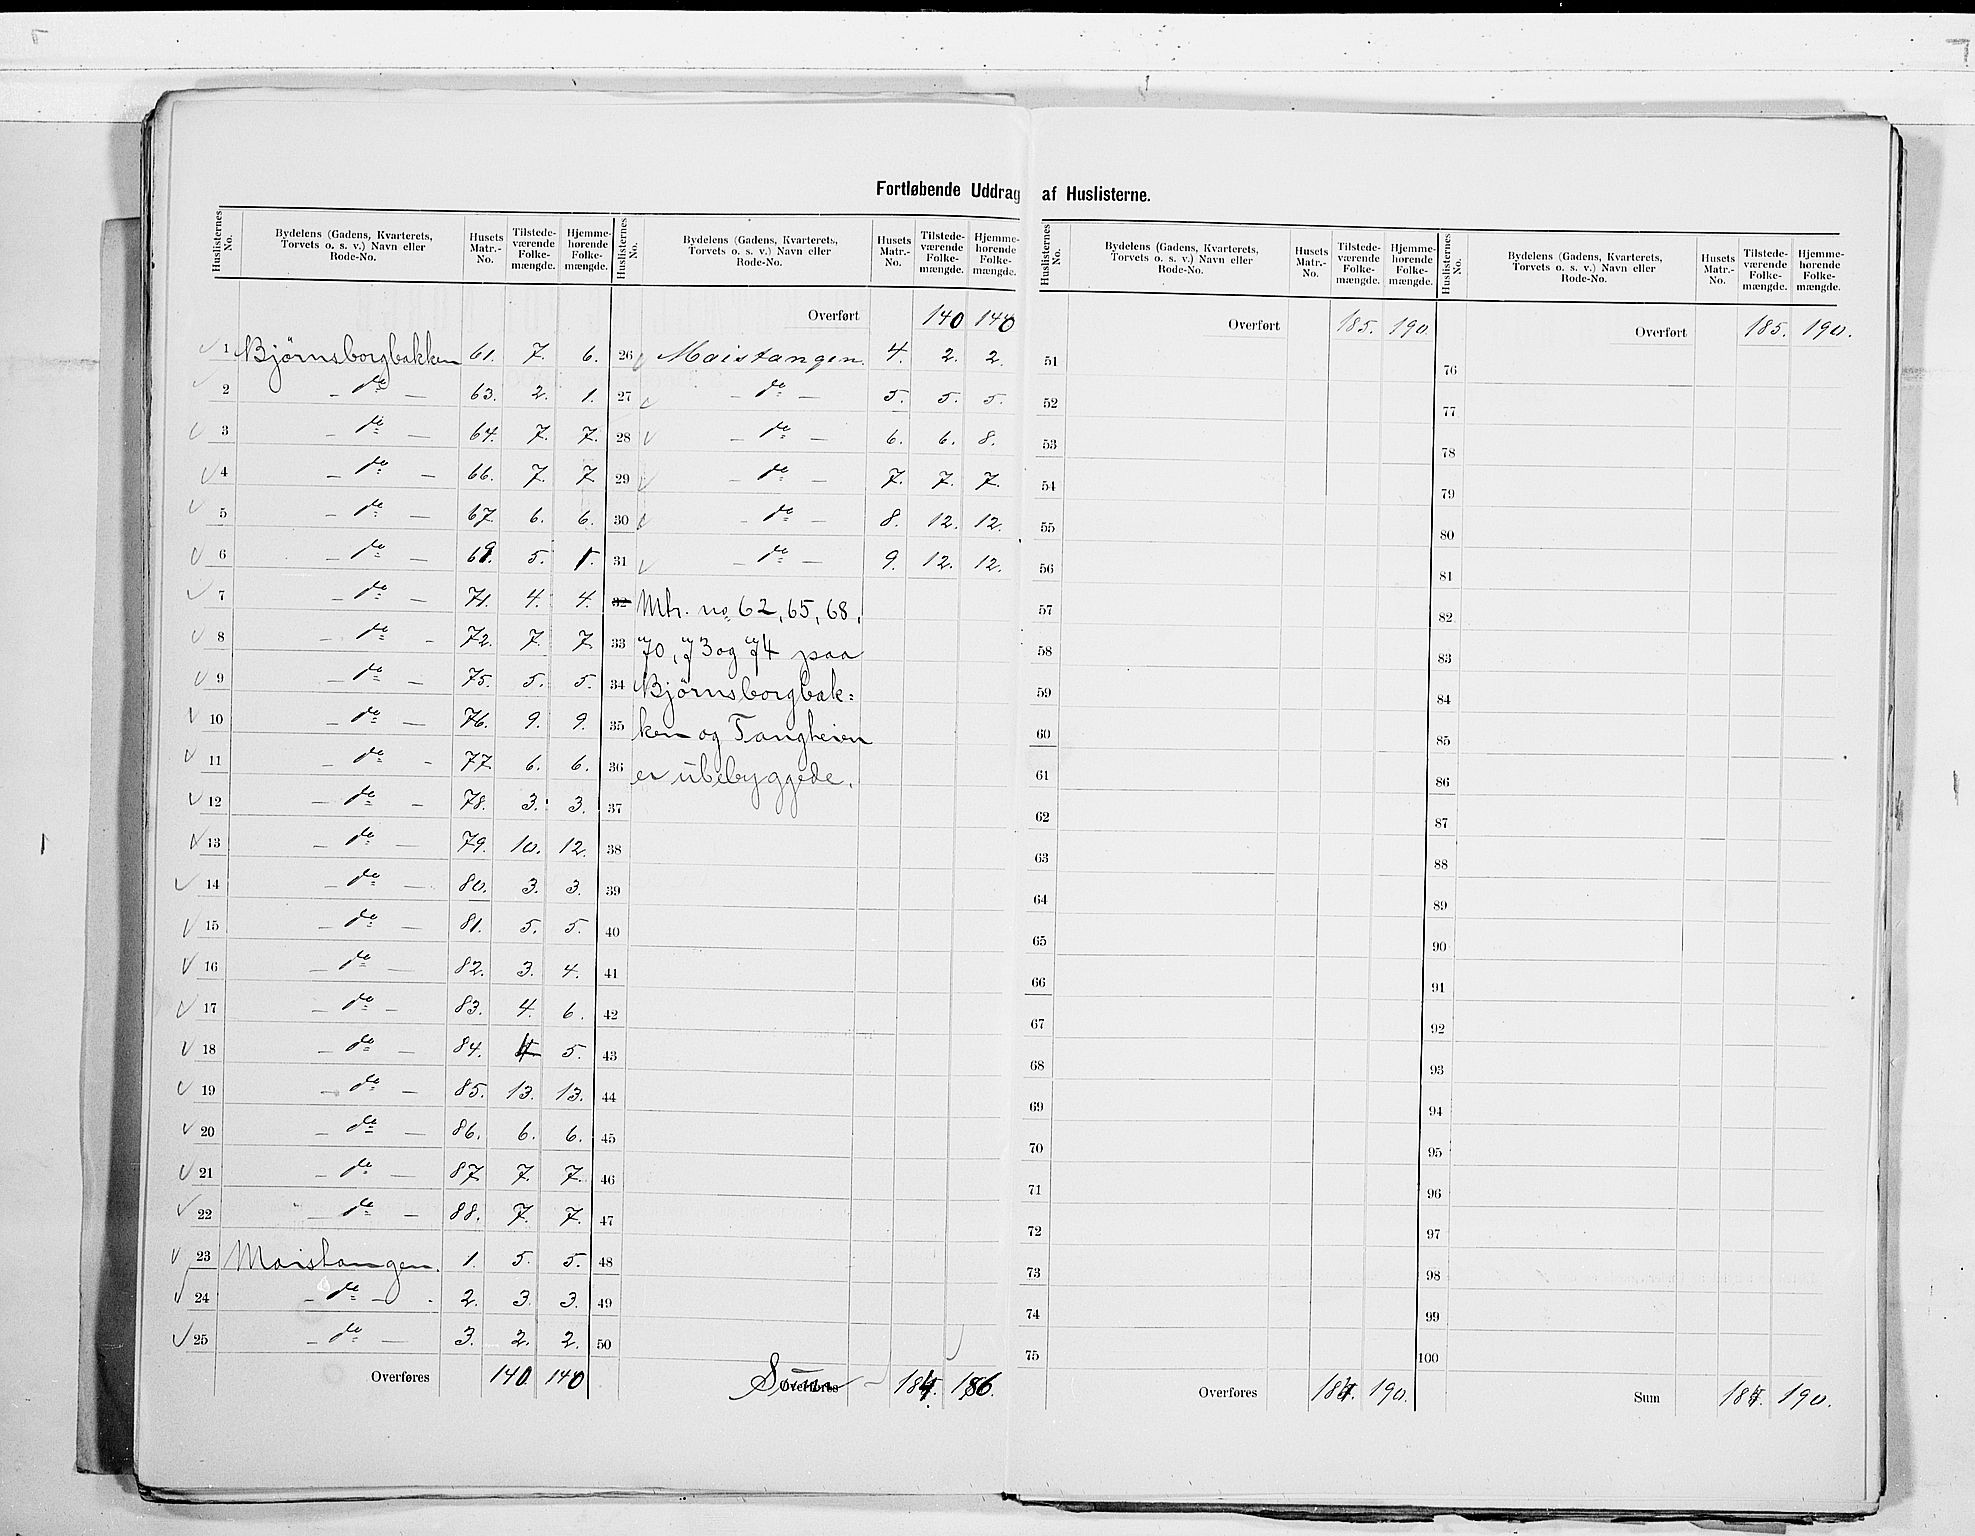 Fortløbende Uddrag af Huslisterne.
Huslisternes No. | Bydelens (Gadens, Kvarterets, Torvets o. s. v.) Navn eller Rode-No. | Husets Matr.-No. | Tilstedeværende Folkemængde. | Hjemmehørende Folkemængde.
1 Bjørnsborgbakken 61. 7. 6.
2 – do – 63. 2. 1.
3 – do – 64. 7. 7.
4 – do – 66. 7. 7
5 – do – 67. 6. 6.
6 – do – 69. 5. 1.
7 – do – 71. 4. 4.
8 – do – 72. 7. 7
9 – do – 75. 5. 5.
10 – do – 76. 9. 9.
11 – do – 77. 6. 6.
12 – do – 78. 3. 3.
13 – do – 79. 10. 12.
14 – do – 80. 3. 3.
15 – do – 81. 5. 5.
16 – do – 82. 3. 4.
17 – do – 83. 4. 6.
18 – do – 84. 4 5.
19 – do – 85. 13. 13.
20 – do – 86. 6. 6.
21 – do – 87 7. 7.
22 – do – 88. 7. 7.
23 Maistangen. 1. 5. 5.
24 – do – 2. 3. 3.
25 – do – 3. 2. 2.
Overføres 140 140
Huslisternes No. | Bydelens (Gadens, Kvarterets, Torvets o. s. v.) Navn eller Rode-No. | Husets Matr.-No. | Tilstedeværende Folkemængde. | Hjemmehørende Folkemængde.
Overført 140 140
26 Maistangen. 4. 2. 2.
27 – do – 5. 5. 5.
28 – do – 6. 6. 8.
29 – do – 7. 7. 7.
30 – do – 8. 12. 12.
31 – do – 9. 12. 12.
32 Mtr. no 62, 65, 68,
33 70, 73 og 74 paa
34 Bjørnsborgbak-
35 ken og Tangheien
36 er ubebyggede.
37
38
39
40
41
42
43
44
45
46
47
48
49
50
Overføres Sum 184. 186.
Huslisternes No. | Bydelens (Gadens, Kvarterets, Torvets o. s. v.) Navn eller Rode-No. | Husets Matr.-No. | Tilstedeværende Folkemængde. | Hjemmehørende Folkemængde.
Overført 185. 190.
51
52
53
54
55
56
57
58
59
60
61
62
63
64
65
66
67
68
69
70
71
72
73
74
75
Overføres 184. 190.
Huslisternes No. | Bydelens (Gadens, Kvarterets, Torvets o. s. v.) Navn eller Rode-No. | Husets Matr.-No. | Tilstedeværende Folkemængde. | Hjemmehørende Folkemængde.
Overført 185. 190.
76
77
78
79
80
81
82
83
84
85
86
87
88
89
90
91
92
93
94
95
96
97
98
99
100
Sum 184. 190.